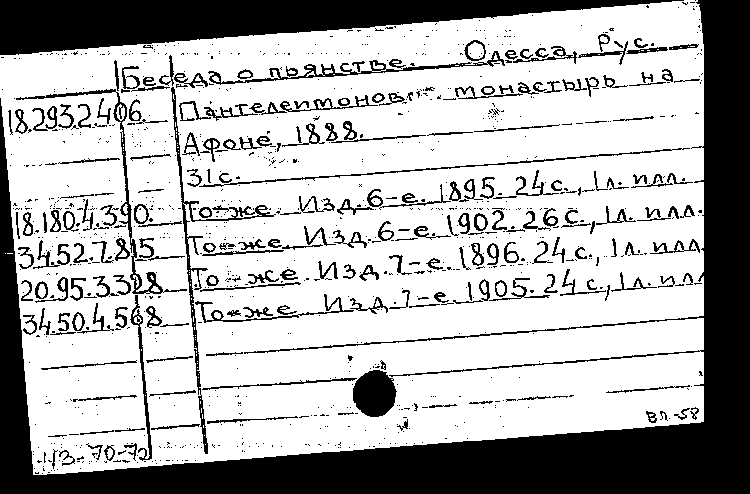 Беседа о пьянстве. Одесса, Рус.
18.293.2.406. Пантелеймоновск. монастырь на
Афоне, 1888.
31с.
18.180.4.390. То-же. Изд. 6-е. 1895. 24с., 1л. илл.
34.52.7.815. То-же. Изд. 6-е. 1902. 26с., 1л. илл.
20.95.3.328 То-же. Изд. 7-е. 1896. 24с., 1л. илл.
34.50.4.568 То-же. Изд. 7-е. 1905. 24с., 1л. илл
ВЛ-58